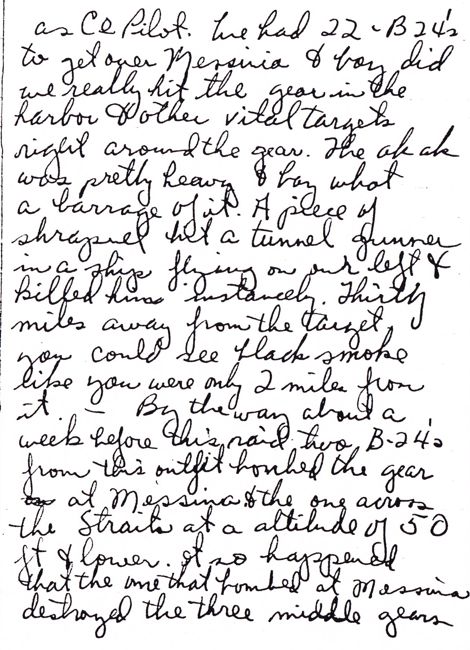 as Co Pilot. We had 22 - B 24's
to get over Messinia & boy did
we really hit the gear in the
harbor & other vital targets
right around the gear. The ak ak
was pretty heavy & boy what
a barrage of it. A piece of
shrapnel hit a tunnel gunner
in a ship flying on our left &
killed him instancely. Thirty
miles away from the target
you could see flack smoke
like you were only 2 miles from
it. — By the way about a
week before this raid two B-24's
from this outfit bombed the gear
at Messina & the one across
the Straits at a altitude of 50
ft & lower. It so happened
that the one that bombed at Messina
destroyed the three middle gears